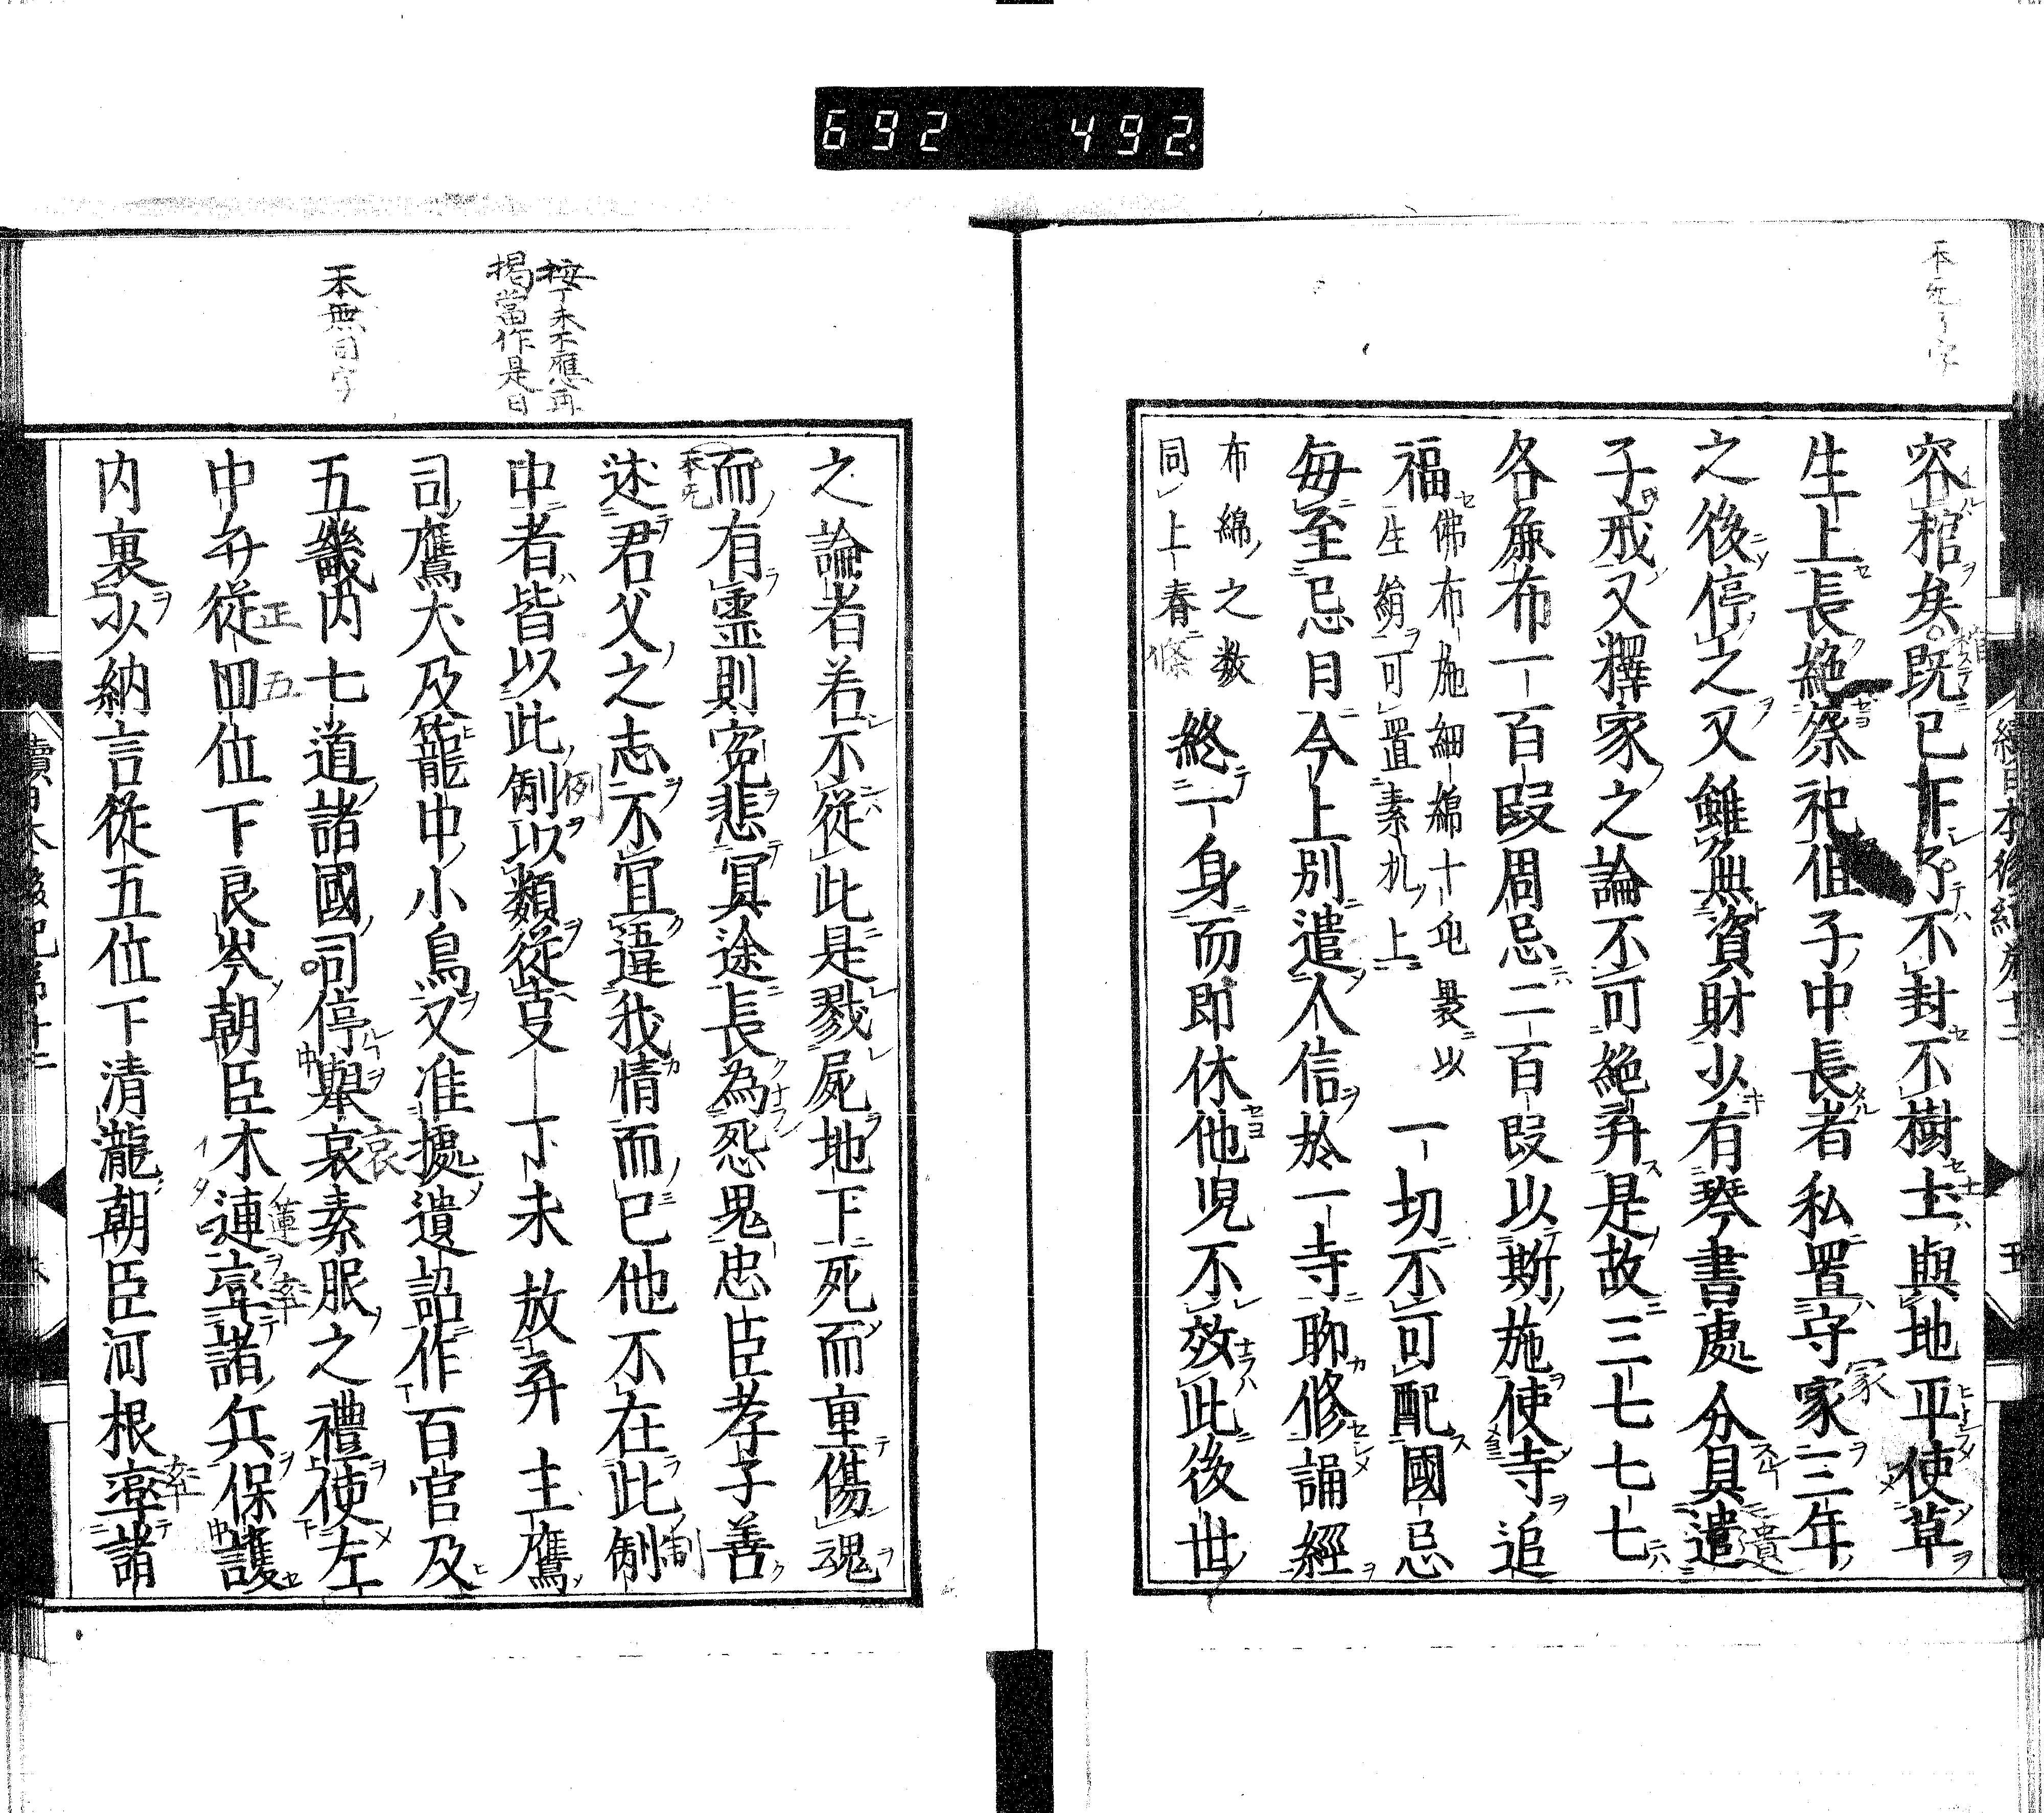 692 492
容棺矣。既已下了不封不樹土與地平使草
生上長絶祭祀但子中長者私置守家三年
之後停之又雖無資財少有琴書處分具遣
子戒又釋家之論不可絶弃是故三七七七
各麁布一百段周忌二百段以斯施使寺追
福
佛布施細綿十屯裹以
生絹可置素机上
一切不可配國忌
毎至忌日今上別遣人信於一寺聊修誦經
布綿之数
同上春
終一身而即休他児不效此後世
之論者若不從此是戮屍地下死而重傷魂
而有靈則寃悲冥途長為怨鬼忠臣孝子善
述君父之志不宜違我情而已他不在此制
中者皆以此制以類從事 丁未 放弃 主鷹
司鷹犬及籠中小鳥又准據遺詔作百官及
五畿内七道諸國司停擧哀素服之禮使左
中弁從四位下良岑朝臣木連率諸兵保護
内裏少納言從五位下清瀧朝臣河根率諸
按丁未不應再
揭當作是日
一本無司字